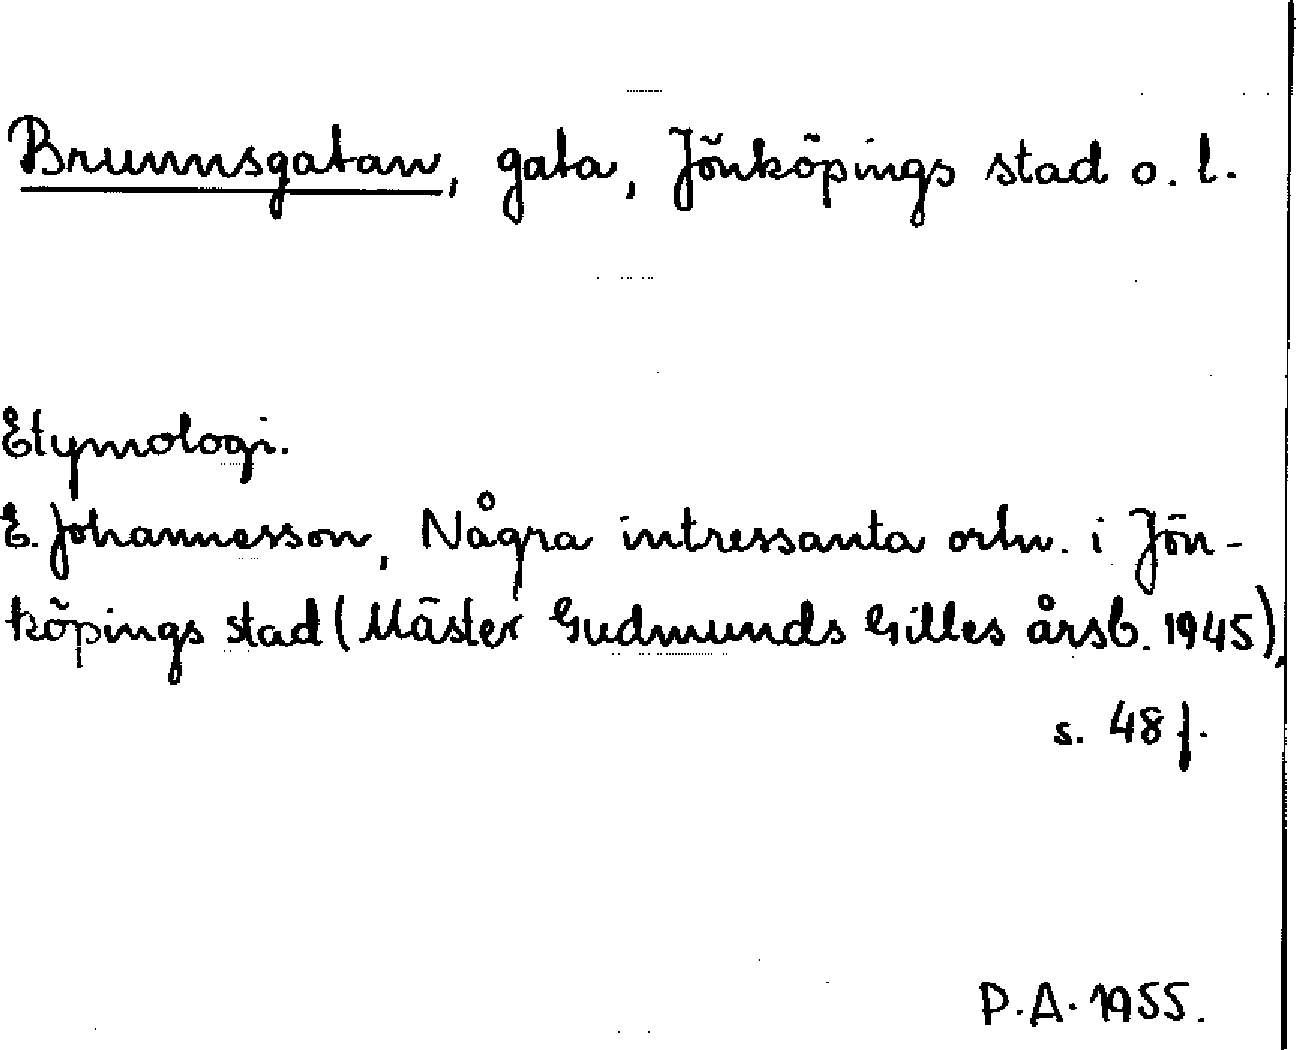 Brunnsgatan, gata, Jönköpings stad o. l.
Etymologi.
E. Johannesson, Några intressanta ortn. i Jön-
köpings stad (Mäster Gudmunds Gilles årsb. 1945),
s. 48 f.
P.A. 1955.